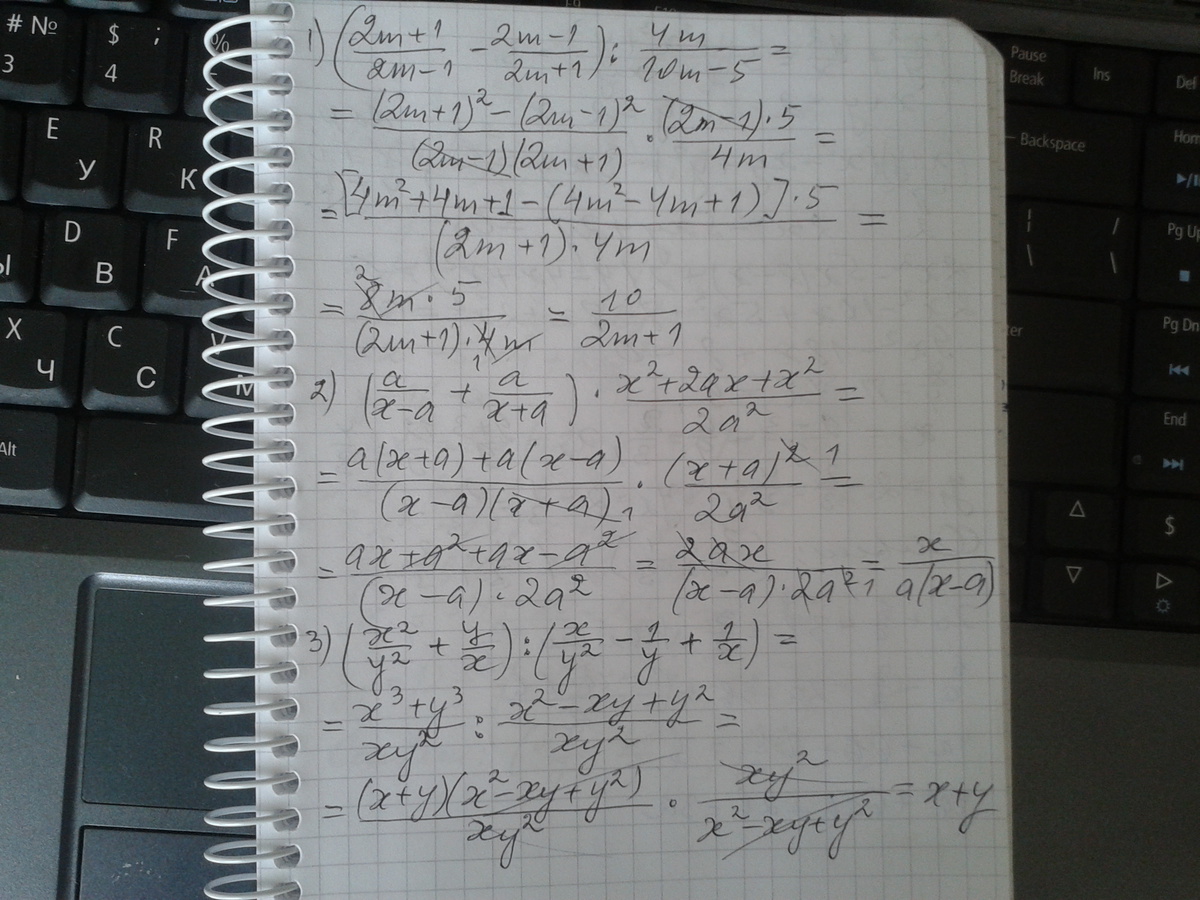 1) ((2m+1)/(2m-1) - (2m-1)/(2m+1)) : 4m/(10m-5) =
= ((2m+1)² - (2m-1)²)/((2m-1)(2m+1)) · ((2m-1)·5)/4m =
= [4m²+4m+1-(4m²-4m+1)]·5/((2m+1)·4m) =
= 8m·5/((2m+1)·4m) = 10/(2m+1)
2) (a/(x-a) + a/(x+a)) · (x²+2ax+x²)/2a² =
= (a(x+a)+a(x-a))/((x-a)(x+a)) · (x+a)²/2a² =
= (ax+a²+ax-a²)/((x-a)·2a²) = 2ax/((x-a)·2a²) = x/(a(x-a))
3) (x²/y² + y/x) : (x/y² - 1/y + 1/x) =
= (x³+y³)/xy² : (x²-xy+y²)/xy² =
= ((x+y)(x²-xy+y²))/xy² · xy²/(x²-xy+y²) = x+y
# №
3
$ ;
4
%
E
У
R
К
D
В
F
А
Ы
X
Ч
C
С
V
М
Alt
Pause
Break
Ins
Del
Backspace
Home
| /
\ \
Pg Up
Pg Dn
End
$